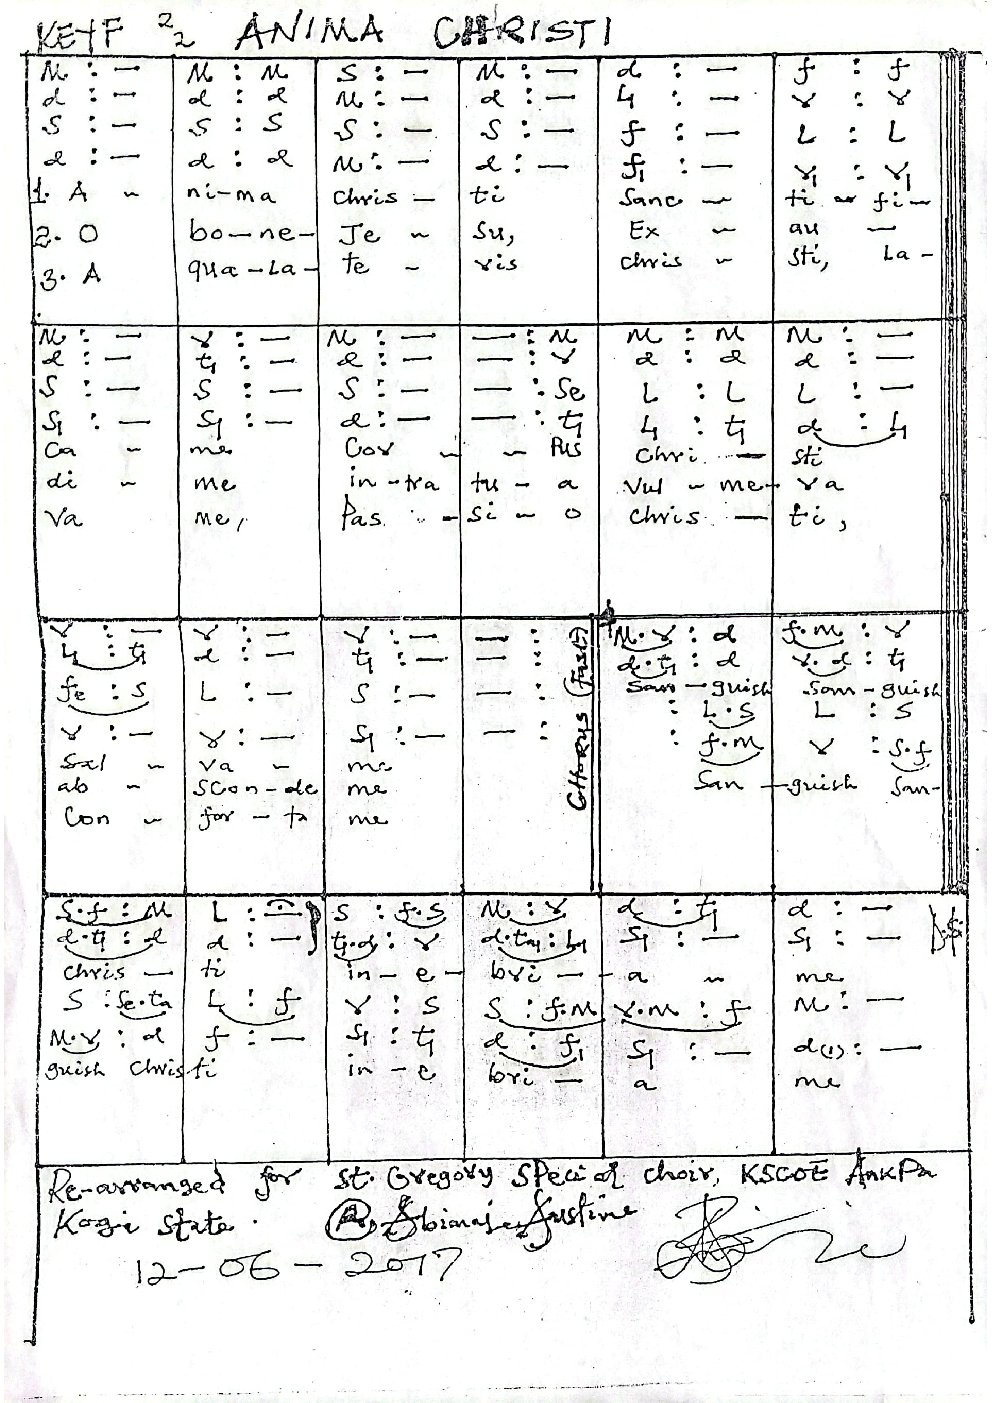 KEY F 2/2 ANIMA CHRISTI
M : — M : M S : — M : — d : — f : f
d : — d : d M : — d : — l₁ : — r : r
S : — S : S S : — S : — f : — L : L
d : — d : d M : — d : — f₁ : — r₁ : r₁
1. A - ni-ma Chris - ti Sanc - ti - fi-
2. O bo-ne- Je - su, Ex - au -
3. A qua-La- te - ris chris - sti, La-
M : — r : — M : — — : M M : M M : —
d : — t₁ : — d : — — : r d : d d : —
S : — S : — S : — — : Se L : L L : —
S₁ : — S₁ : — d : — — : t₁ l₁ : t₁ d : l₁
Ca - me Cor - - Pus Chri - sti
di - me in-tra tu - a Vul - me- ra
Va me, Pas - si - o Chris - ti,
r : — r : — r : — — : M.r : d f.m : r
l₁ : t₁ d : — t₁ : — — : d.t₁ : d r.d : t₁
fe : S L : — S : — — : San - guish San - guish
r : — r : — S₁ : — — : : L.S L : S
Sal - va - me : f.m r : S.f
ab - scon-de me San - guish San-
Con - for - ta me
CHORUS (fast)
S.f : M L : — S : f.S M : r d : t₁ d : —
d.t₁ : d d : — t₁.d : r d.ta₁ : l₁ S₁ : — S₁ : — D.S
Chris - ti in - e - bri - - a - me
S : Se.ta L : f r : S S : f.M r.m : f M : —
M.r : d f : — S₁ : t₁ d : f₁ S₁ : — d(1) : —
guish Christi in - e bri - a me
Re-arranged for St. Gregory Special Choir, KSCOE Ankpa
Kogi State. Justine
12-06-2017